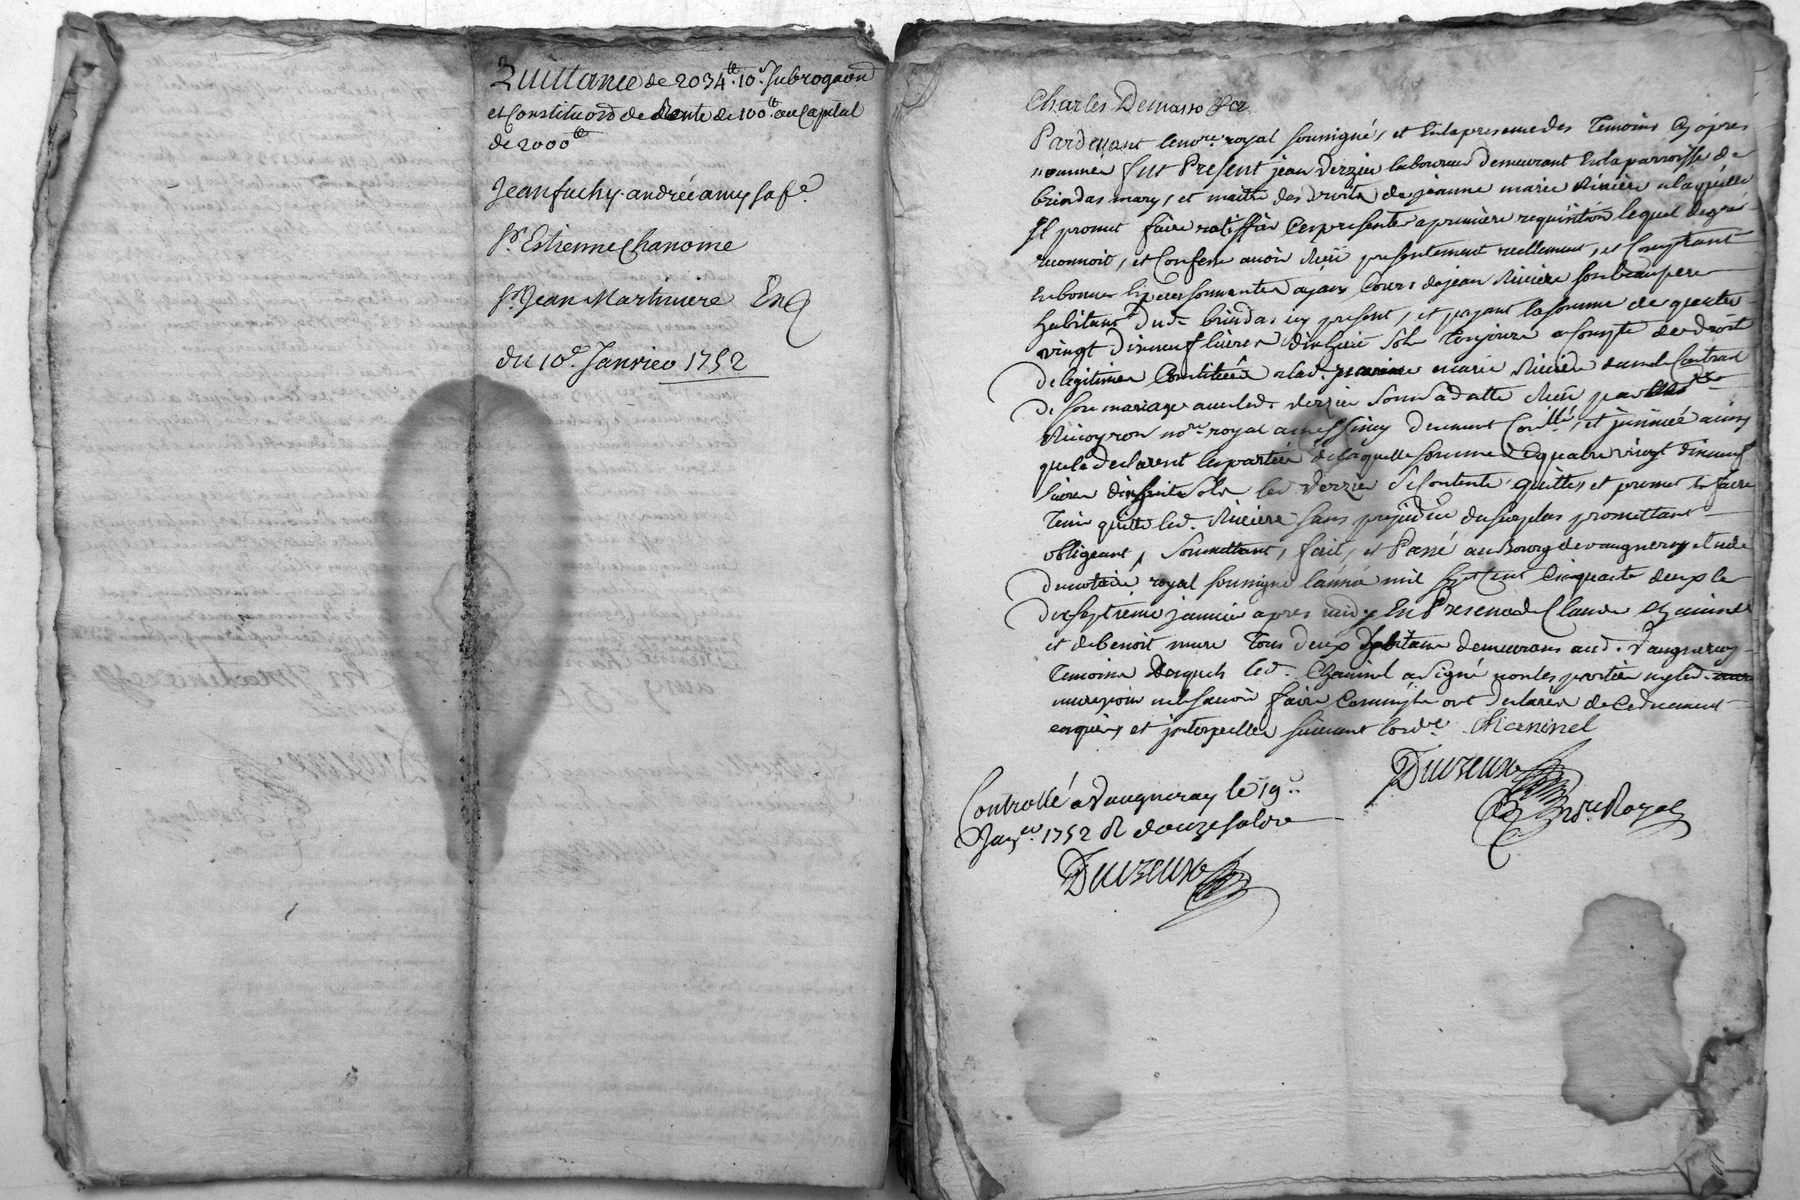 Quittance de 2034ᵗᵗ 10ˢ Subrogaōn
et Constituōn de Rente de 100ᵗᵗ au Capital
de 2000ᵗᵗ
Jean fachy andrée amy sa fᵉ
Sʳ Estienne Chanoine
Sʳ Jean Martiniere
du 10ᵉ Janvier 1752
Charles Demasso &ca
Pardevant le noʳᵉ royal soussigné, et En la presence des Temoins Cy apres
nommes fut Present jean Verzier laboureur demeurant En la parroisse de
brindas mary, et maitre des droits de jeanne marie Riviere a laquelle
Il promet faire ratiffier Ces presentes a premiere requisition lequel de gré
reconnoit, et Confesse avoir Receu presentement reellement, et Comptant
En bonnes Especes sonnantes ayant Cours de jean Riviere son beau pere
habitant dud. brindas icy present, et payant la somme de quatre
vingt dix neuf livres dix huit sols Toujours a Compte des droits
de legitime Constitués a lad. marie Riviere dans le Contrat
de son mariage avec led. Verzier sous sa datte Receu par
noʳᵉ royal a messimy deuement Conˡˡᵉ, et jnsinué ainsy
que le declarent les parties de laquelle somme de quatre vingt dix neuf
livres dix huit sols led. Verzier se Contente quitte, et promet En faire
Tenir quitte led. Riviere sans prejudice du surplus promettant
obligeant, soumettant, fait, et Passé au Bourg de vaugneray etude
du notaire royal soussigné l'année mil sept cent Cinquante deux le
dix septieme janvier apres midy En Presence de Claude Chaninel
et de benoit mure Tous deux habitans demeurans aud. Vaugneray
Temoins Desquels led. Chaninel a signé non les parties ny led.
mure pour ne scavoir faire Comm'ils ont declarés de Ce deuement
enquis, et jnterpellés suivant lordᶜᵉ Chaninel
noʳᵉ Royal
Controllé a Vaugneray le 19ᵉ
Janᵉʳ 1752 R douze sols